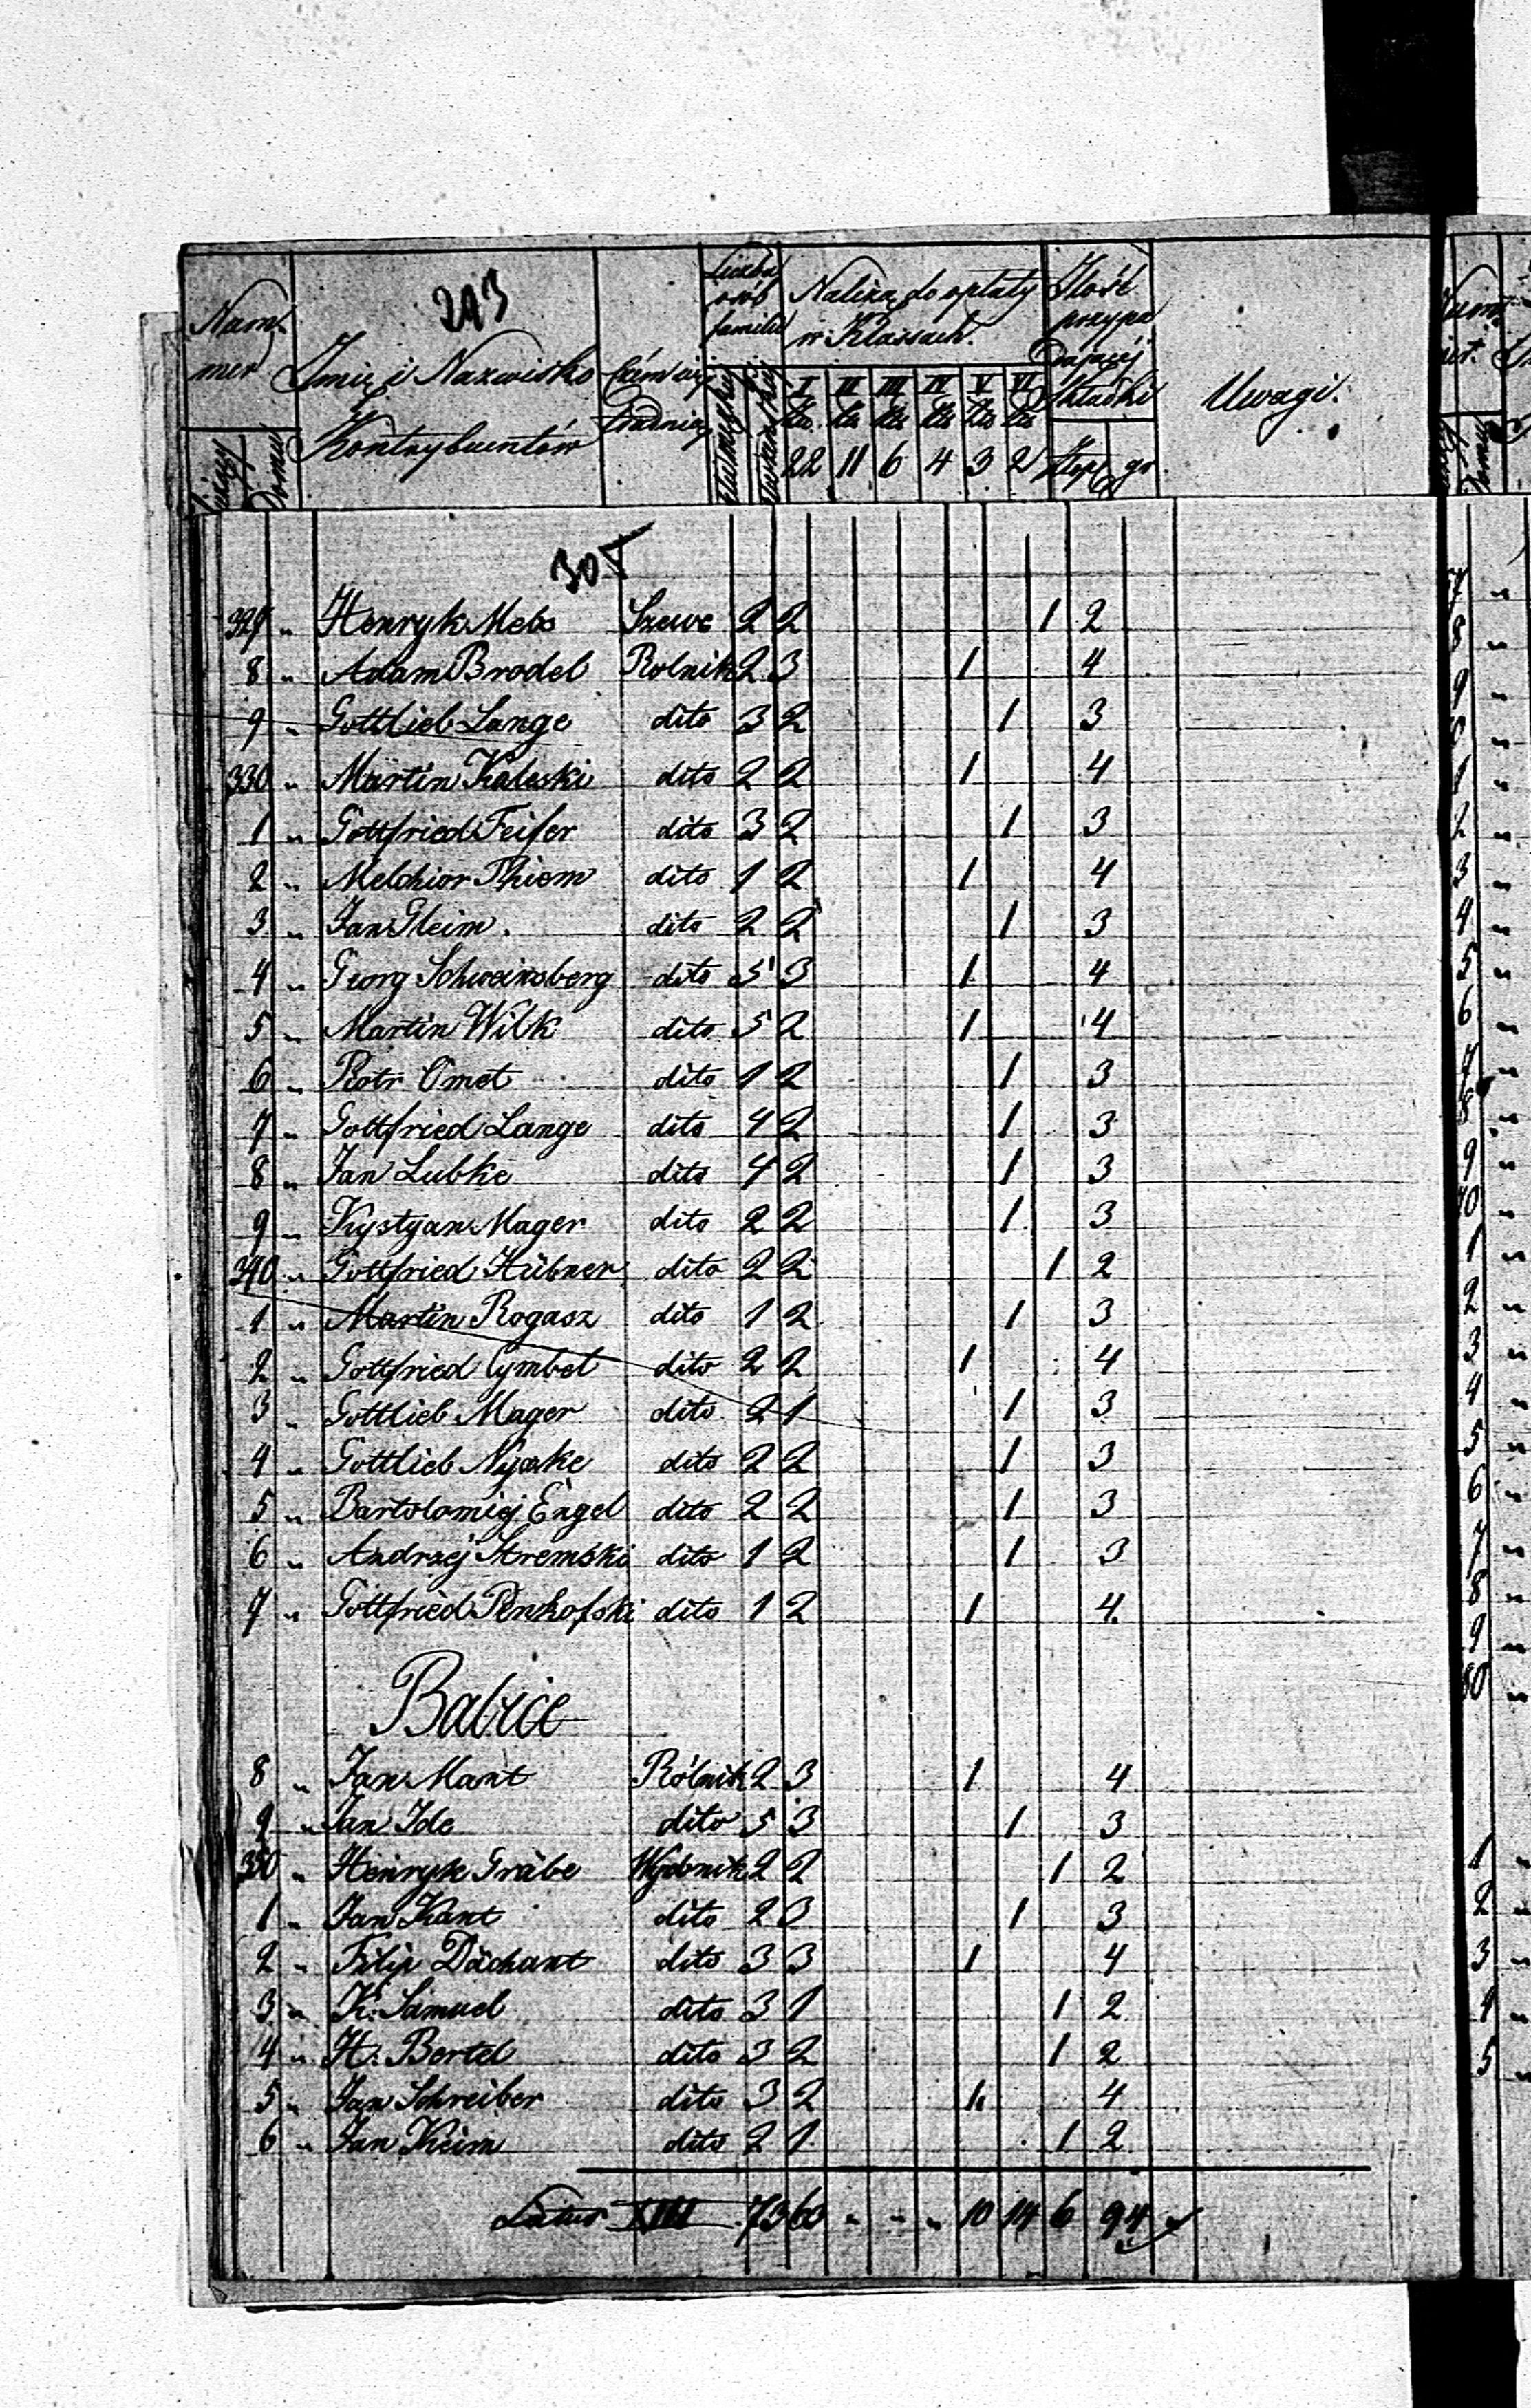 Num-
mer
293
Imię i Nazwisko
Kontrybuentów
Czém się
trudnią
Liczba
osób
familii
Należą do opłaty
w Klassach.
I II III IV V VI
22 11 6 4 3 2
Ilość
przypa
dającej
składki
Złp. gr.
Uwagi.
bieżący
Domu
305
327 " Henryk Mebs Szewc 2 2 1 2
8 " Adam Brodel Rolnik 2 3 1 4
9 " Gottlieb Lange dito 3 2 1 3
330 " Martin Kaleski dito 2 2 1 4
1 " Gottfried Feifer dito 3 2 1 3
2 " Melchior Thiem dito 1 2 1 4
3 " Jan Gleim dito 2 2 1 3
4 " Georg Schweinsberg dito 5 3 1 4
5 " Martin Wilk dito 5 2 1 4
6 " Piotr Omet dito 1 2 1 3
7 " Gottfried Lange dito 4 2 1 3
8 " Jan Lubke dito 4 2 1 3
9 " Krystyan Mager dito 2 2 1 3
340 " Gottfried Hübner dito 2 2 1 2
1 " Martin Rogasz dito 1 2 1 3
2 " Gottfried Cymbel dito 2 2 1 4
3 " Gottlieb Mager dito 2 1 1 3
4 " Gottlieb dito 2 2 1 3
5 " Bartolomiej Engel dito 2 2 1 3
6 " Andrzej Stremski dito 1 2 1 3
7 " Gottfried Penkofski dito 1 2 1 4
Babice
8 " Jan Mant Rólnik 2 3 1 4
9 " Jan Ide dito 5 3 1 3
350 " Henryk Gräbe Wyrobnik 2 2 1 2
1 " Jan Kant dito 2 3 1 3
2 " Filip Dächant dito 3 3 1 4
3 " K. Samuel dito 3 1 1 2
4 " H. Bertel dito 3 2 1 2
5 " Jan Schreiber dito 3 2 1 4
6 " Jan Keim dito 2 1 1 2
Latus XIII 73 63 " " " 10 14 6 94